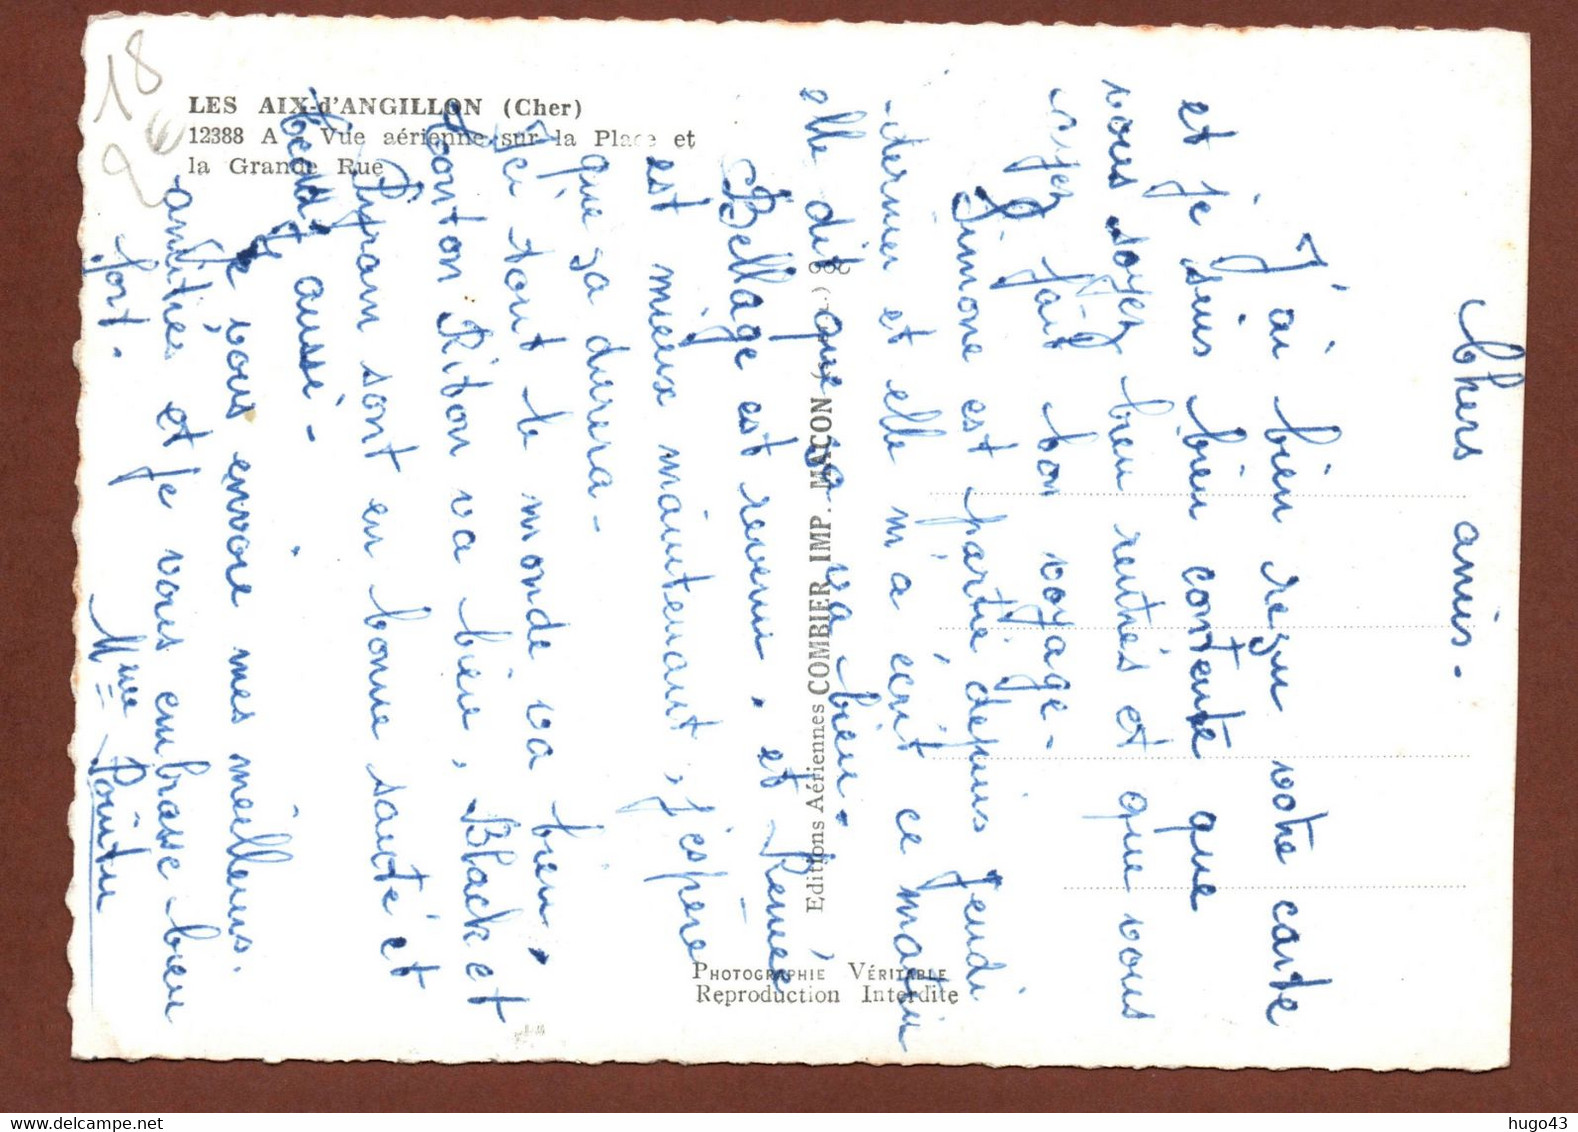 18
2€
LES AIX-d'ANGILLON (Cher)
12388 A - Vue aérienne sur la Place et
la Grande Rue
Chers amis -
J'ai bien reçu votre carte
et je suis bien contente que
vous soyez bien rentrés et que vous
ayez fait bon voyage -
Simone est partie depuis Jeudi
dernier et elle m'a écrit ce matin,
elle dit que va va bien.
Bellage est revenu. et Renée
est mieux maintenant, j'espère
que sa durera -
Ici tout le monde va bien,
Tonton Riton va bien, Black et
Pyram sont en bonne santé et
aussi -
Je vous envoie mes meilleurs
amitiés et je vous embrasse bien
fort.
Mme Pointu
Editions Aériennes COMBIER IMP. MACON
PHOTOGRAPHIE VÉRITABLE
Reproduction Interdite
hugo43